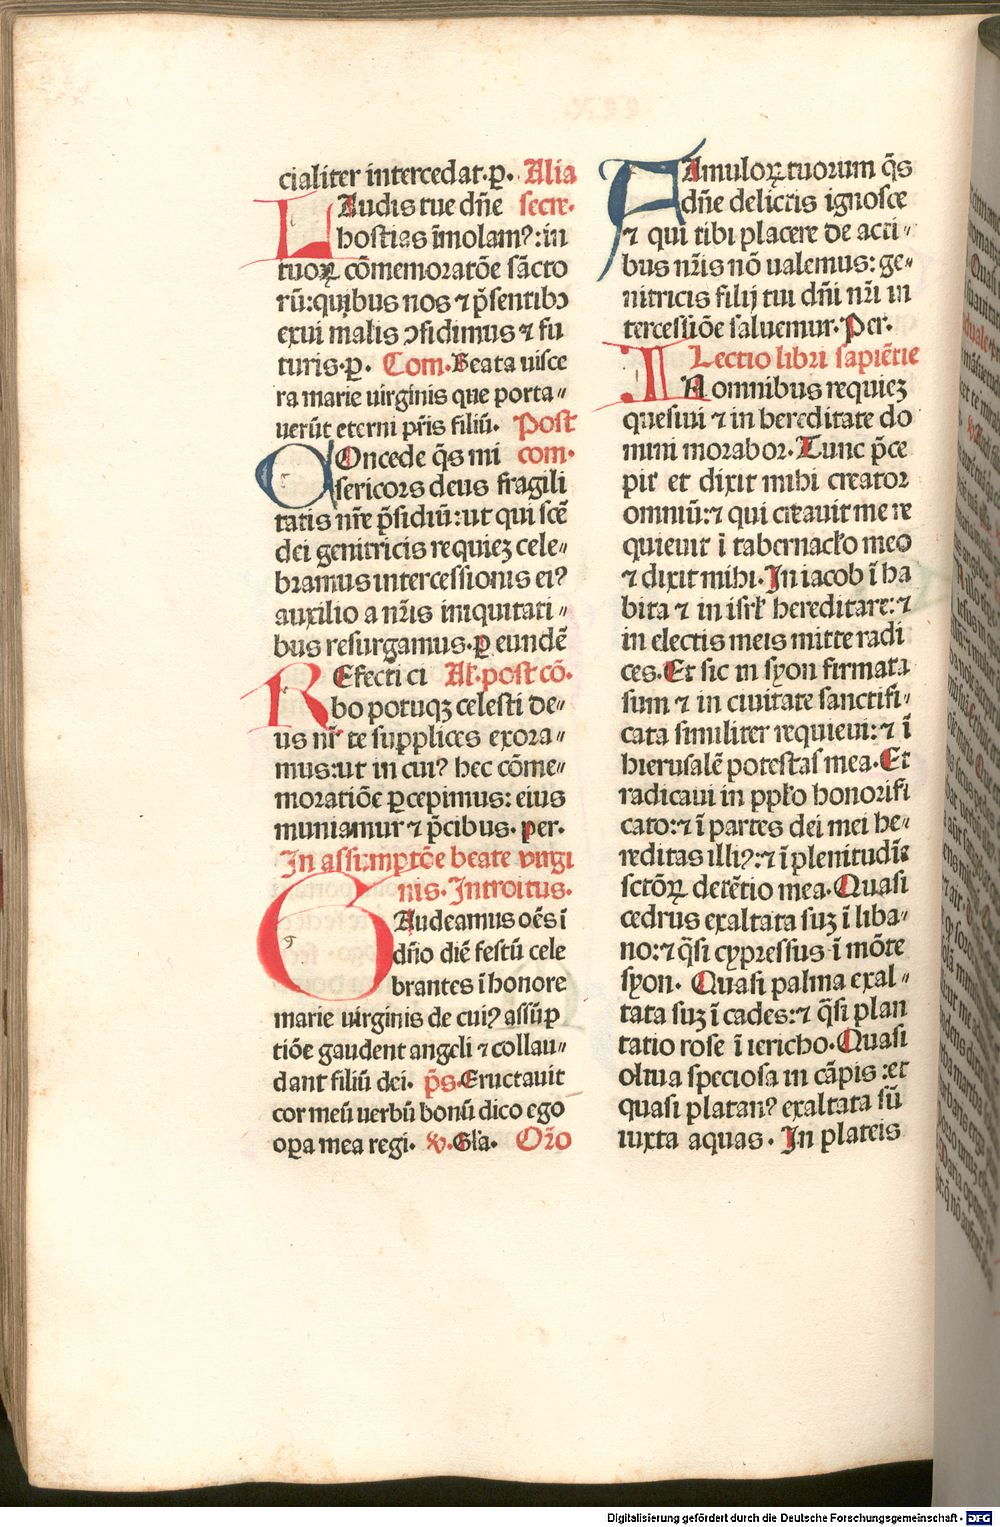 cialiter intercedat·ꝑ· Alia
LAudis tue dñe secre·
hostias ĩmolamꝰ:in
tuoꝝ cõmemoratõe sãcto
rũ:quibus nos ⁊ p̃sentibꝰ
exui malis ↄfidimus ⁊ fu
turis·ꝑ· Com·Beata uisce
ra marie uirginis que porta⸗
uerũt eterni pr̃is filiũ· Post
COncede q̃s mi com·
sericors deus fragili
tatis nr̃e p̃sidiũ:ut qui scẽ
dei genitricis requieꝫ cele⸗
bramus intercessionis eiꝰ
auxilio a nr̃is iniquitati⸗
bus resurgamus·ꝑ eundẽ
REfecti ci Al̃·post cõ·
bo potuqꝫ celesti de⸗
us nr̃ te supplices exora⸗
mus:ut in cuiꝰ hec cõme⸗
moratiõe ꝑcepimus:eius
muniamur ⁊ p̃cibus·per·
In assumptõe beate virgi
nis·Introitus·
GAudeamus oẽs ĩ
dño diẽ festũ cele
brantes ĩ honore
marie uirginis de cuiꝰ assũp
tiõe gaudent angeli ⁊ collau⸗
dant filiũ dei· p̃s·Eructauit
cor meũ uerbũ bonũ dico ego
oꝑa mea regi· ꝟ·Gl̃a· Or̃o
FAmuloꝝ tuorum q̃s
dñe delictis ignosce
⁊ qui tibi placere de acti⸗
bus nr̃is nõ ualemus:ge⸗
nitricis filij tui dñi nr̃i in
tercessiõe saluemur·Per·
Lectio libri sapiẽtie
IN omnibus requieꝫ
quesiui ⁊ in hereditate do
mini morabor·Tunc p̃ce
pit et dixit mihi creator
omniũ:⁊ qui creauit me re
quieuit ĩ tabernacl̃o meo
⁊ dixit mihi·In iacob ĩha
bita ⁊ in isrl̃ hereditare:⁊
in electis meis mitte radi
ces·Et sic in syon firmata
sum ⁊ in ciuitate sanctifi⸗
cata similiter requieui:⁊ ĩ
hierusalẽ potestas mea·Et
radicaui in ppl̃o honorifi
cato:⁊ ĩ partes dei mei he⸗
reditas illiꝰ:⁊ ĩ plenitudĩe
sctõꝝ detẽtio mea·Quasi
cedrus exaltata suꝫ ĩ liba⸗
no:⁊ q̃si cypressus ĩ mõte
syon· Quasi palma exal⸗
tata suꝫ ĩ cades:⁊ q̃si plan
tatio rose ĩ iericho·Quasi
oliua speciosa in cãpis:et
quasi platanꝰ exaltata sũ
iuxta aquas· In plateis
Digitalisierung gefördert durch die Deutsche Forschungsgemeinschaft - DFG